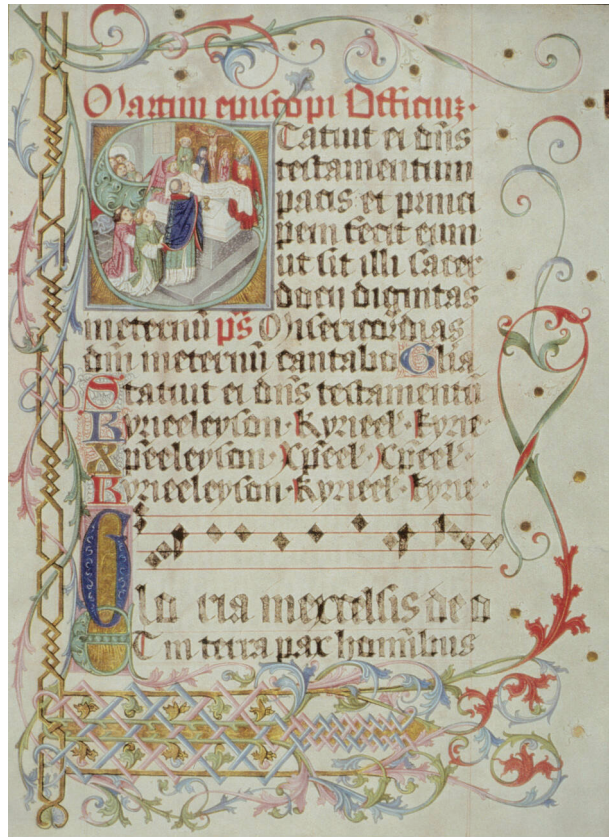 Martini episcopi Officiuz.
Statuit ei dn̄s
testamentum
pacis et princi
pem fecit eum
ut sit illi sacer
docij dignitas
ineternū ps̄ Misericordias
dn̄i ineternū cantabo Glia
Statuit ei dn̄s testamentū
Kyrieeleyson · Kyrieel' · Kyrie ·
Xp̄eeleyson · Xp̄eel' · Xp̄eel' ·
Kyrieeleyson · Kyrieel' · Kyrie ·
Glo ria inexcelsis deo
Et in terra pax hominibus